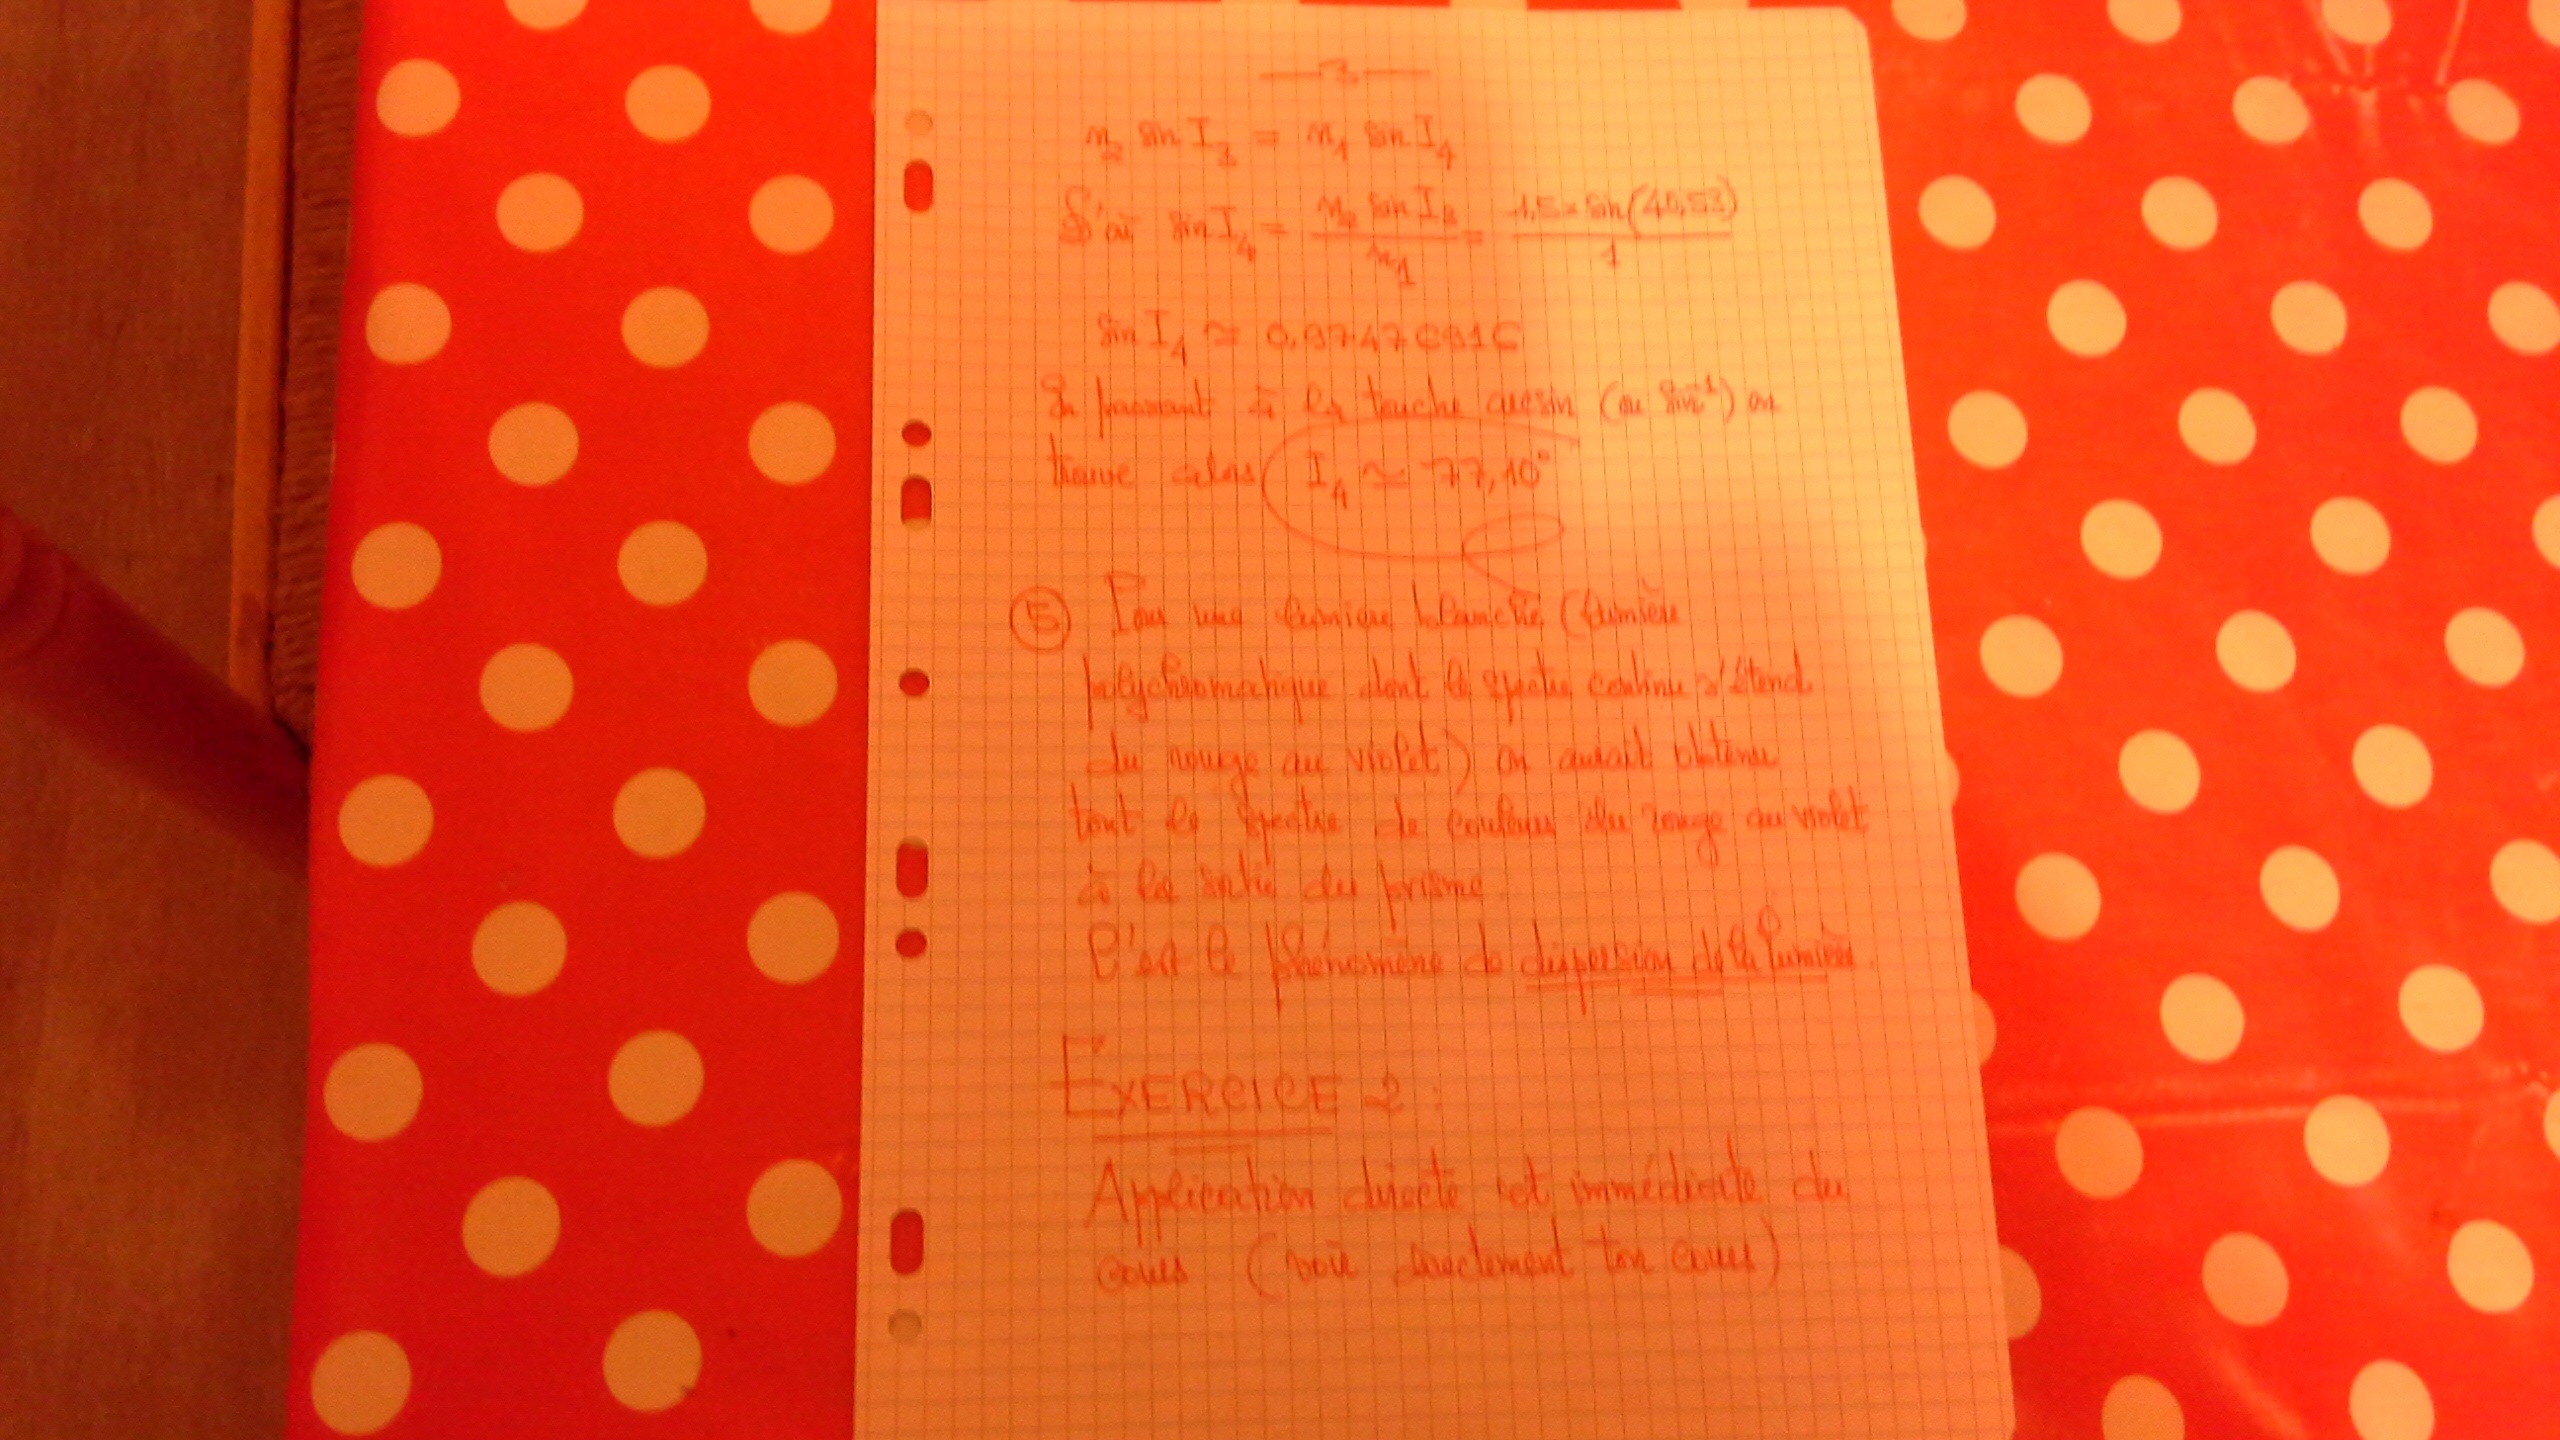 — 3 —
n₂ sin I₃ = n₁ sin I₄
D'où sin I₄ = n₂ sin I₃ / n₁ = 1,5 × sin(40,53) / 1
sin I₄ ≃ 0,97476916
En passant à la touche arcsin (ou sin⁻¹) on
trouve alors I₄ ≃ 77,10°
⑤ Pour une lumière blanche (lumière
polychromatique dont le spectre continu s'étend
du rouge au violet) on aurait obtenu
tout le spectre de couleurs du rouge au violet
à la sortie du prisme.
C'est le phénomène de dispersion de la lumière.
EXERCICE 2 :
Application directe et immédiate du
cours (voir directement ton cours)